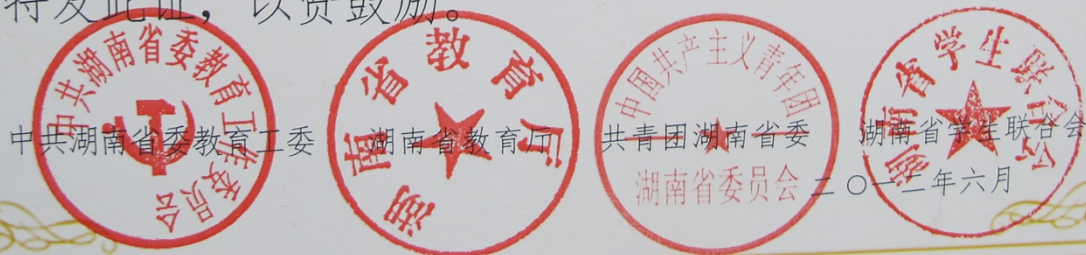 特发此证，以资鼓励。
中共湖南省委教育工作委员会
湖南省教育厅
中国共产主义青年团
湖南省委员会
湖南省学生联合会
中共湖南省委教育工委 湖南省教育厅 共青团湖南省委 湖南省学生联合会
二〇一二年六月